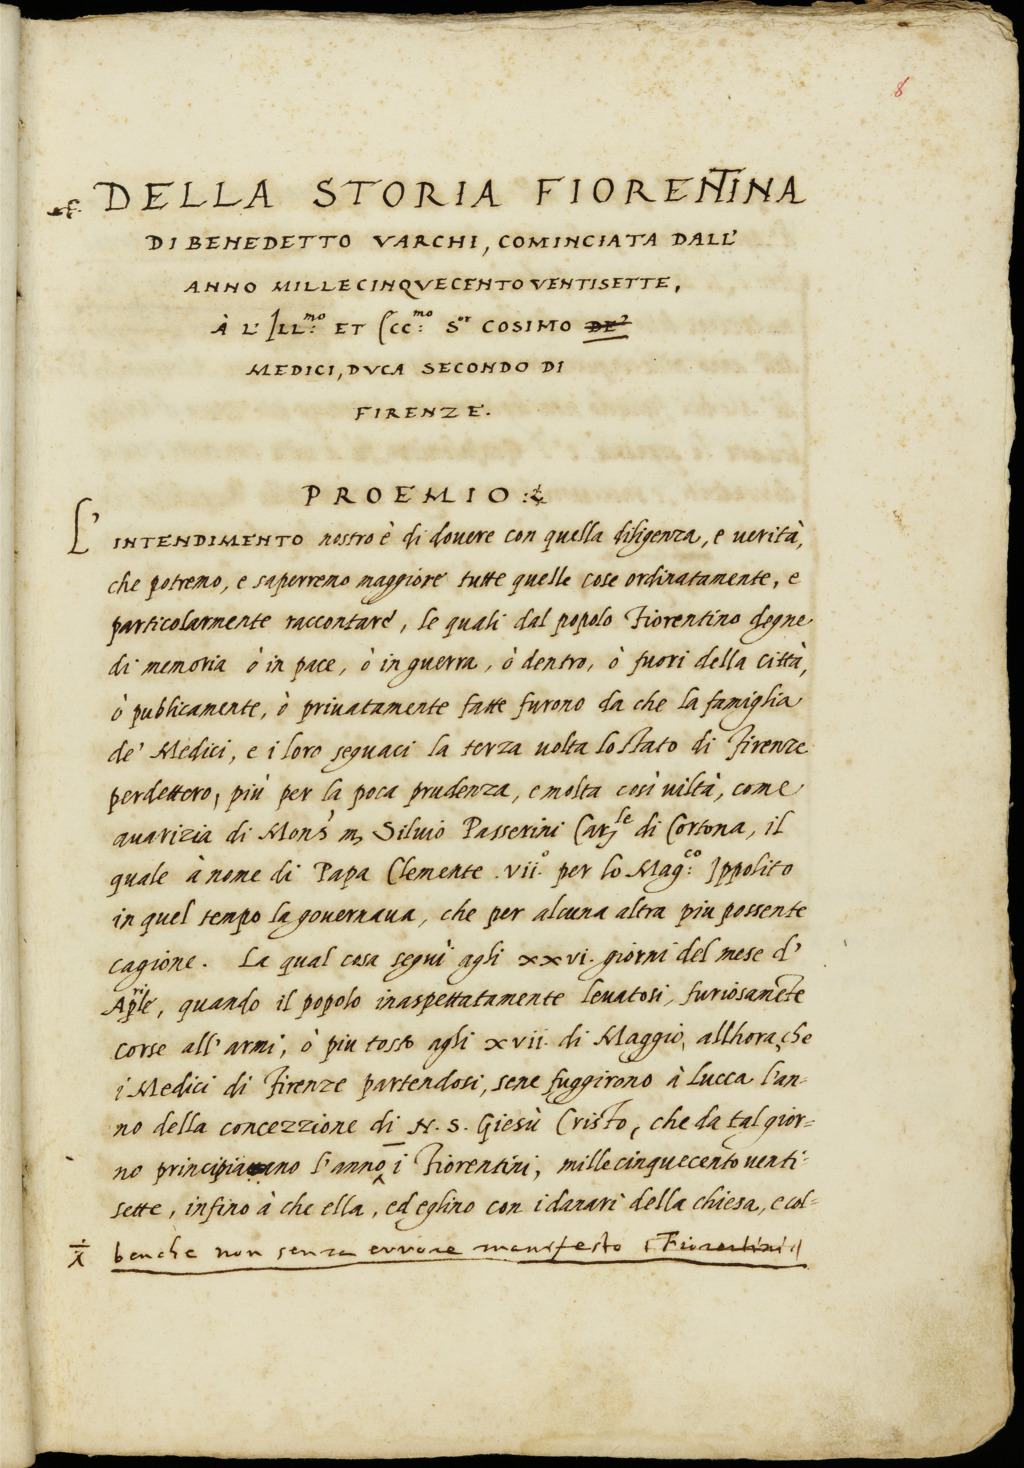 8
DELLA STORIA FIORENTINA
DI BENEDETTO VARCHI, COMINCIATA DALL'
ANNO MILLECINQVECENTOVENTISETTE,
À L' ILL:mo ET ECC:mo S.or COSIMO DE'
MEDICI, DVCA SECONDO DI
FIRENZE.
PROEMIO:
L' INTENDIMENTO nostro è di douere con quella diligenza, e uerità,
che potremo, e saperremo maggiore tutte quelle cose ordinatamente, e
particolarmente raccontare, le quali dal popolo Fiorentino degne
di memoria ò in pace, ò in guerra, ò dentro, ò fuori della città,
ò publicamente, ò priuatamente fatte furono da che la famiglia
de' Medici, e i loro seguaci la terza uolta lo stato di Firenze
perdettero, più per la poca prudenza, e molta così uiltà, come
auarizia di Mons.r m, Siluio Passerini Car.le di Cortona, il
quale à nome di Papa Clemente .vii.o per lo Mag:co Ippolito
in quel tempo la gouernaua, che per alcuna altra piu possente
cagione. La qual cosa seguì agli xxvi. giorni del mese d'
Aprile, quando il popolo inaspettatamente leuatosi, furiosamēte
corse all' armi, ò piu tosto agli xvii. di Maggio, allhora, che
i Medici di Firenze partendosi, sene fuggirono à Lucca l'an-
no della concezzione di N. S. Giesù Cristo, che da tal gior=
no principiauano l'anno i Fiorentini, millecinquecentouenti-
sette, infino à che ella, ed eglino con i danari della chiesa, e col-
benche non senza errore manifesto (Fiorentini)